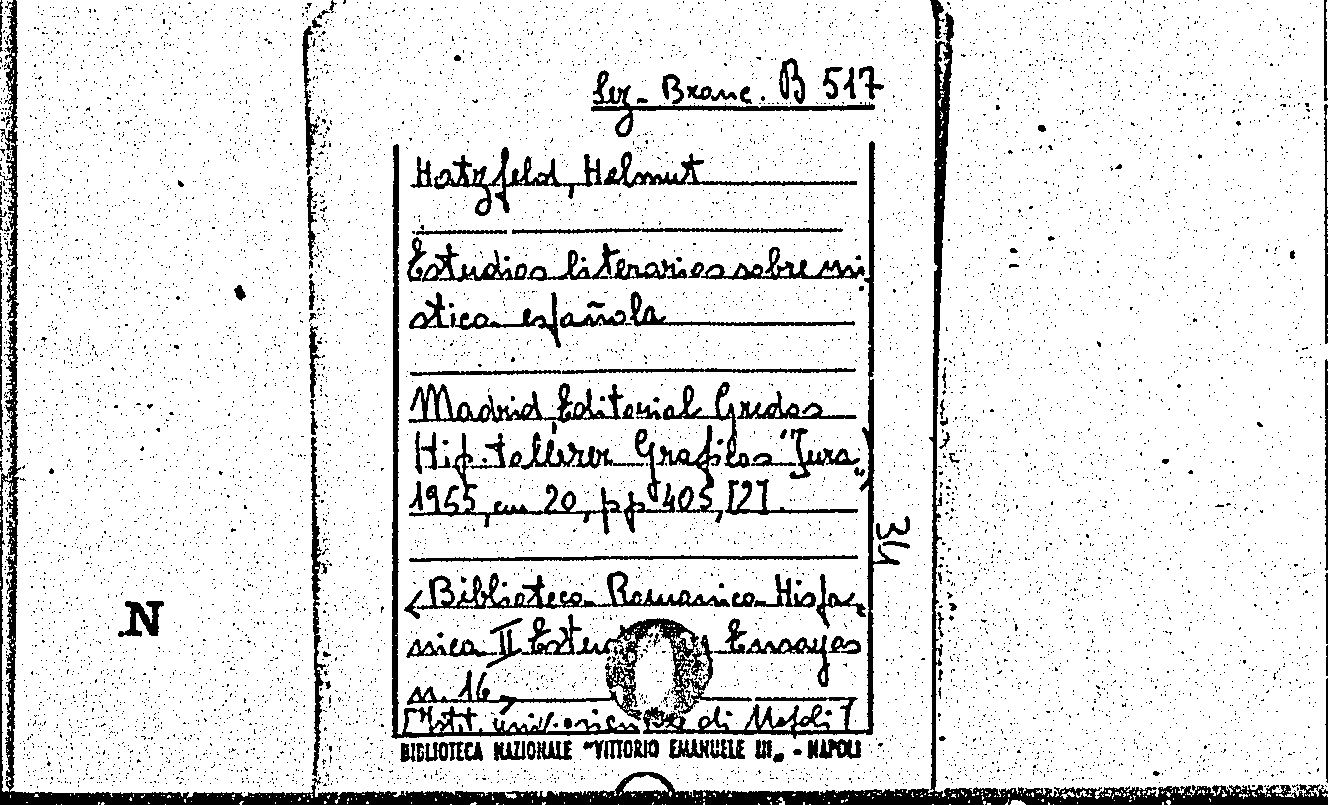 Sez. Branc. B 517
Hatzfeld, Helmut
Estudios literarios sobre mi-
stica española
Madrid, Editorial Gredos
Graficos "Jura"
1955, cm 20, pp 405, [2].
<Biblioteca Romanica Hispa-
nica II Ensayos
n. 16>
[Istit. univ. di Napoli]
BIBLIOTECA NAZIONALE "VITTORIO EMANUELE III" - NAPOLI
N